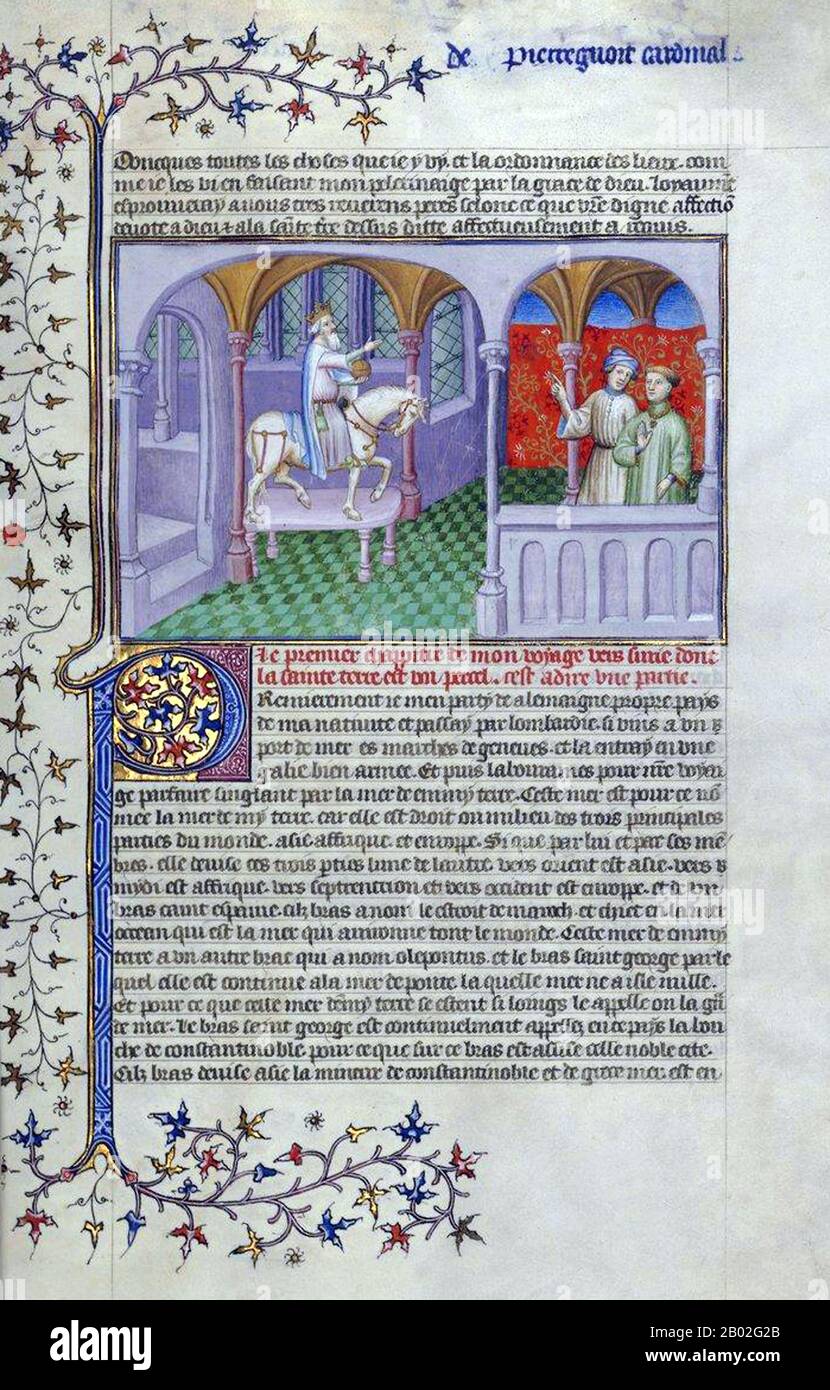 de pierreguort cardinal.
Doncques toutes les choses que ie y vy. et la ordonnance des lieux. com
me ie les vi en faisant mon pelerinaige par la grace de dieu. loyaumēt
esprouueray a vous tres reuerens peres selonc ce que vr̄e digne affectiō
deuote a dieu et a la saīte tr̄e dessus ditte affectueusement a requis.
Le premier chapitre de mon voyage vers surie dont
la sainte terre est vn parcel. cest adire vne partie.
Premierement ie men party de alemaigne propre pays
de ma natiuite et passay par lombardie. si vins a vn
port de mer es marches de geneues. et la entray en vne
galie bien armee. Et puis labourames pour nr̄e voyen
ge parfaire singlant par la mer de emmy terre. Ceste mer est pour ce nō
mee la mer de my terre. car elle est droit ou milieu des trois principales
parties du monde. asie affrique. et europpe. Si que par lui et par ses mē
bres. elle deuise ces trois p̄ties lune de lautre. vers orient est asie. vers
mydi est affrique. vers septentrion et vers occident est europpe. et de vn
bras caint espaine. cilz bras a nom le estroit de maroch. et chiet en la mer
occean qui est la mer qui auironne tout le monde. Ceste mer de emmy
terre a vn autre brac qui a nom olepontus. et le bras saint george par le
quel elle est continue a la mer de ponte. la quelle mer ne a isle nulle.
Et pour ce que celle mer dēmy terre se estent si loings le appelle on la grā
de mer. Le bras saint george est continuelment appellez en ce pays la bou
che de constantinoble. pour ce que sur ce bras est assise celle noble cite.
Cilz bras deuise asie la mineur de constantinoble et de grece mer. est en
alamy
alamy
Image ID: 2B02G2B
www.alamy.com